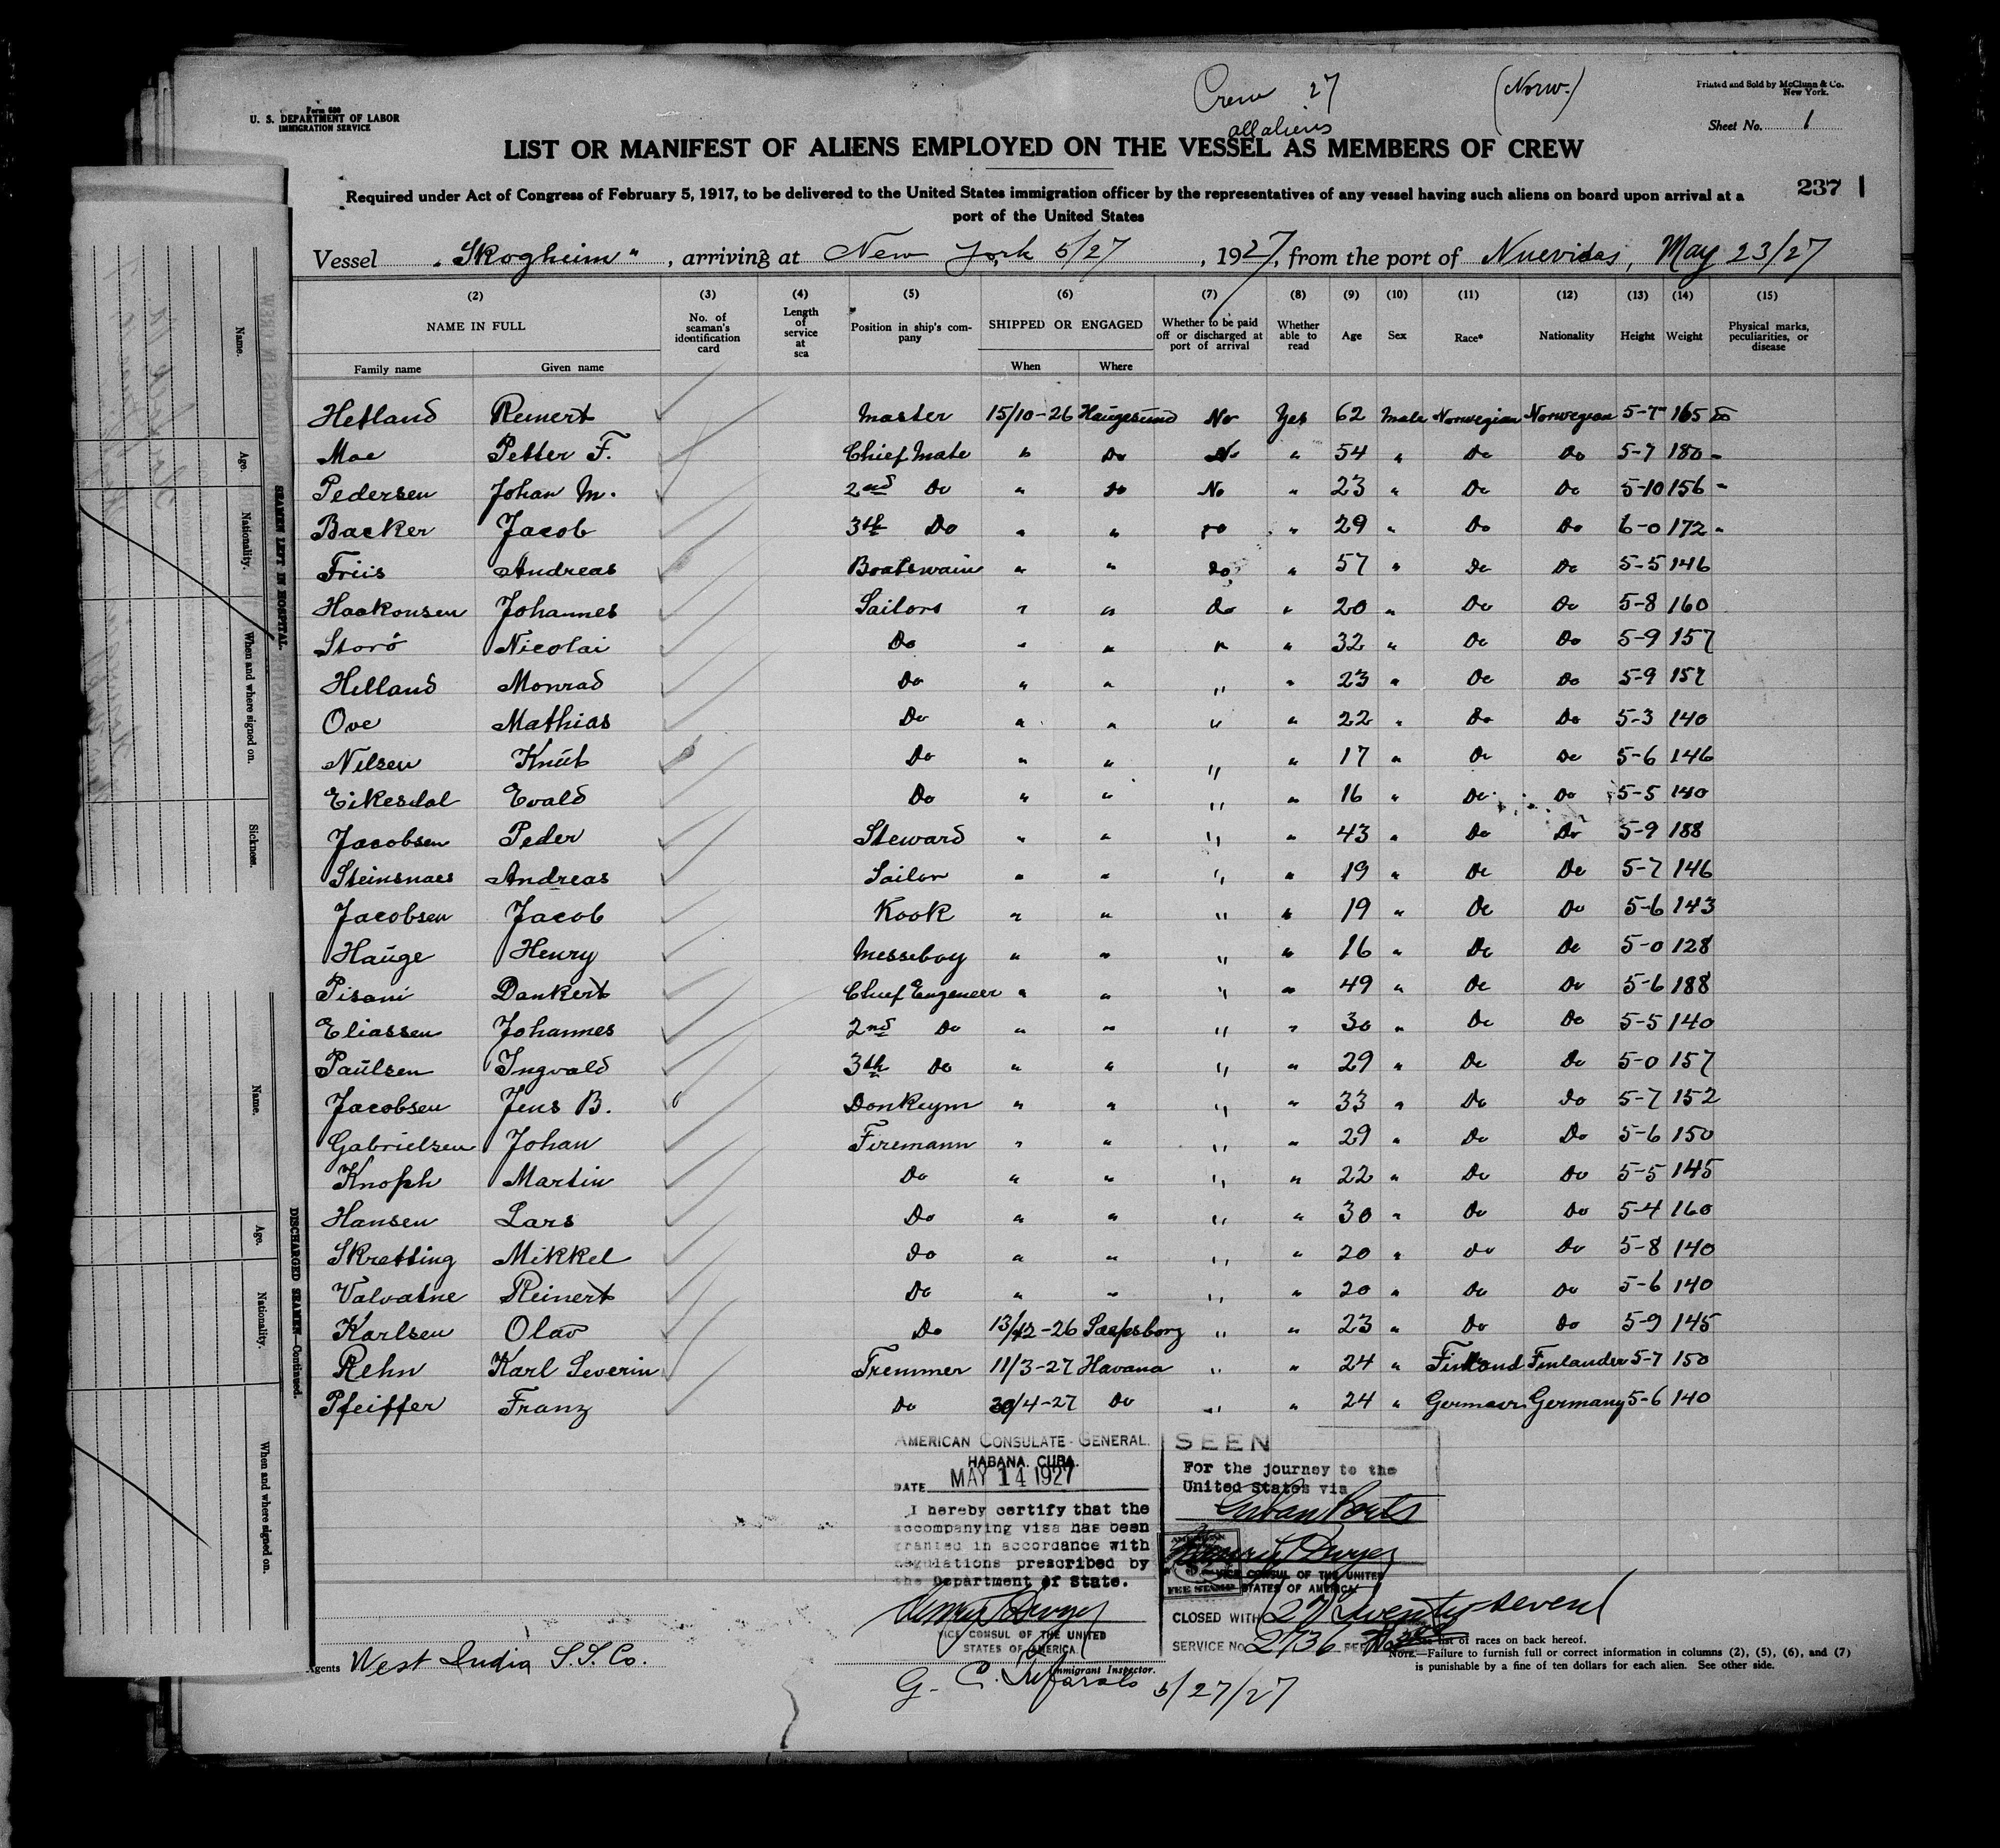 Crew 27 (Norw.)
all aliens
Printed and Sold by McClunn & Co.
New York.
Form 680
U. S. DEPARTMENT OF LABOR
IMMIGRATION SERVICE
Sheet No. 1
LIST OR MANIFEST OF ALIENS EMPLOYED ON THE VESSEL AS MEMBERS OF CREW
Required under Act of Congress of February 5, 1917, to be delivered to the United States immigration officer by the representatives of any vessel having such aliens on board upon arrival at a
port of the United States
237
Vessel "Skogheim", arriving at New York 5/27, 1927, from the port of Nuevidas, May 23/27
(2) (3) (4) (5) (6) (7) (8) (9) (10) (11) (12) (13) (14) (15)
NAME IN FULL No. of seaman's identification card Length of service at sea Position in ship's company SHIPPED OR ENGAGED Whether to be paid off or discharged at port of arrival Whether able to read Age Sex Race* Nationality Height Weight Physical marks, peculiarities, or disease
Family name Given name When Where
Hetland Reinert Master 15/10-26 Haugesund No Yes 62 Male Norwegian Norwegian 5-7 165
Moe Petter F. Chief Mate " Do No " 54 " Do Do 5-7 180
Pedersen Johan M. 2nd Do " Do No " 23 " Do Do 5-10 156
Backer Jacob 3th Do " " " 29 " Do Do 6-0 172
Friis Andreas Boatswain " " Do " 57 " Do Do 5-5 146
Haakonsen Johannes Sailors " " Do " 20 " Do Do 5-8 160
Storö Nicolai Do " " " " 32 " Do Do 5-9 157
Helland Monrad Do " " " " 23 " Do Do 5-9 157
Ove Mathias Do " " " " 22 " Do Do 5-3 140
Nilsen Knut Do " " " " 17 " Do Do 5-6 146
Eikesdal Evald Do " " " " 16 " Do Do 5-5 140
Jacobsen Peder Steward " " " " 43 " Do Do 5-9 188
Steinsnaes Andreas Sailor " " " " 19 " Do Do 5-7 146
Jacobsen Jacob Kook " " " " 19 " Do Do 5-6 143
Hauge Henry Messeboy " " " " 16 " Do Do 5-0 128
Pisani Dankert Chief Engeneer " " " " 49 " Do Do 5-6 188
Eliassen Johannes 2nd Do " " " " 30 " Do Do 5-5 140
Paulsen Ingvald 3th Do " " " " 29 " Do Do 5-0 157
Jacobsen Jens B. Donkeym " " " " 33 " Do Do 5-7 152
Gabrielsen Johan Firemann " " " " 29 " Do Do 5-6 150
Knoph Martin Do " " " " 22 " Do Do 5-5 145
Hansen Lars Do " " " " 30 " Do Do 5-4 160
Skretting Mikkel Do " " " " 20 " Do Do 5-8 140
Valvatne Reinert Do " " " " 20 " Do Do 5-6 140
Karlsen Olav Do 13/12-26 Sarpsborg " " 23 " Do Do 5-9 145
Rehn Karl Severin Tremmer 11/3-27 Havana " " 24 " Finland Finlander 5-7 150
Pfeiffer Franz Do 30/4-27 Do " " 24 " German Germany 5-6 140
AMERICAN CONSULATE-GENERAL.
HABANA. CUBA.
DATE MAY 14 1927
I hereby certify that the
accompanying visa has been
granted in accordance with
regulations prescribed by
the Department of State.
VICE CONSUL OF THE UNITED
STATES OF AMERICA
SEEN
For the journey to the
United States via
Cuban Ports
VICE CONSUL OF THE UNITED
STATES OF AMERICA
FEE STAMP
CLOSED WITH 27 Twenty-seven
SERVICE No. 2736 FEE
list of races on back hereof.
NOTE.—Failure to furnish full or correct information in columns (2), (5), (6), and (7)
is punishable by a fine of ten dollars for each alien. See other side.
Agents West India S.S.Co.
Immigrant Inspector.
5/27/27
SEAMEN LEFT IN HOSPITAL
Name.
Age.
Nationality.
When and where signed on.
Sickness.
DISCHARGED SEAMEN—Continued.
Name.
Age.
Nationality.
When and where signed on.